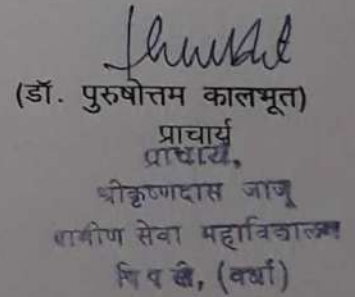 (डॉ. पुरुषोत्तम कालभूत)
प्राचार्य
प्राचार्य,
श्रीकृष्णदास जाजू
ग्रामीण सेवा महाविद्यालय
(वर्धा)